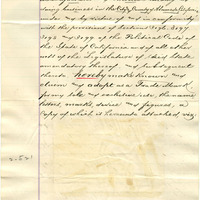 doing business in the City, County of Alameda
under and by virtue of and in conformity
with the provisions of Sections 3196, 3197
3198 and 3199 of the Political Code of
the State of California and of all other
acts of the Legislature of said State
amendatory thereof and subsequent
thereto hereby make known and
claim and adopt as a Trade Mark
for my sole and exclusive use, the name
letters, marks, device and figures, a
copy of which is hereunto attached, viz.